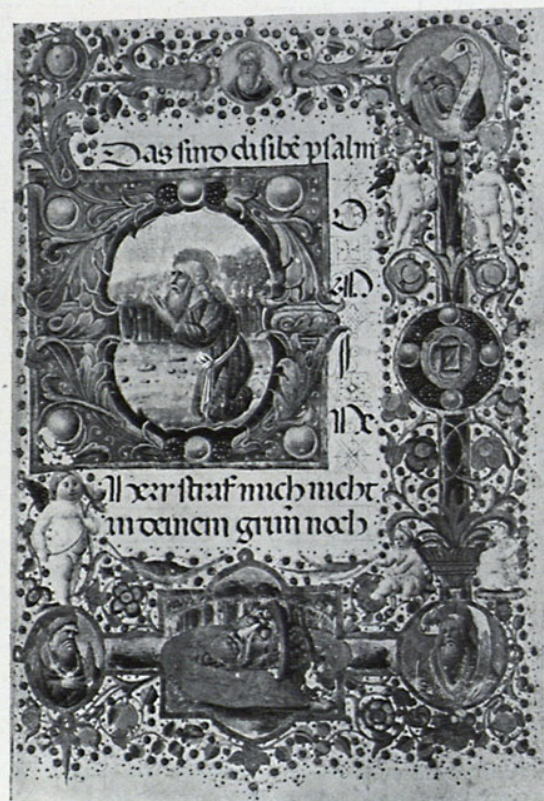 Das sind di sibē psalm
DO
M
I
NE
Herr straf mich nicht
in deinem grim̄ noch